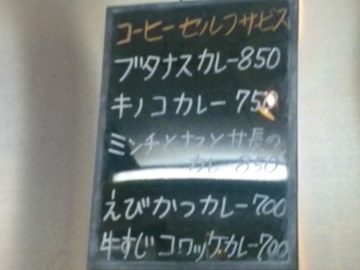 コーヒーセルフサービス
ブタナスカレー850
キノコカレー 750
ミンチとナスと甘長の
カレー 850
えびかつカレー700
牛すじコロッケカレー700